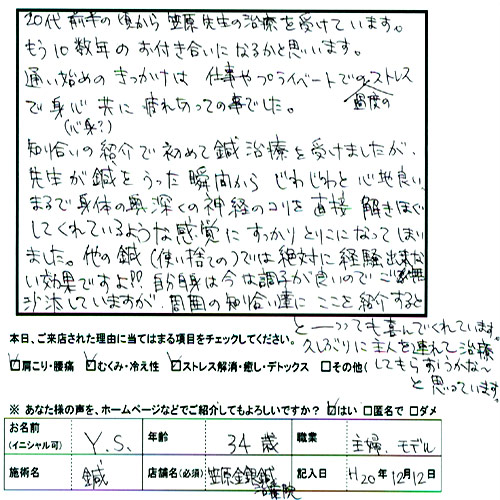 20代前半の頃から笠原先生の治療を受けています。
もう10数年のお付き合いになるかと思います。
通い始めのきっかけは 仕事やプライベートでの過度のストレス
で身心共に疲れきっての事でした。
(心身?)
知り合いの紹介で初めて鍼治療を受けましたが、
先生が鍼をうった瞬間からじわじわと心地良い、
まるで身体の奥深くの神経のコリを直接解きほぐ
してくれているような感覚にすっかりとりこになってしまい
ました。他の鍼(使い捨ての)では絶対に経験出来な
い効果ですよ!!自分自身は今な調子が良いのでご無
沙汰していますが、周囲の知り合い達にここを紹介すると
と―っても喜んでくれています。
久しぶりに主人を連れて治療
してもらおうかな〜
と思っています。
本日、ご来店された理由に当てはまる項目をチェックしてください。
☑肩こり・腰痛 ☑むくみ・冷え性 ☑ストレス解消・癒し・デトックス □その他(
※ あなた様の声を、ホームページなどでご紹介してもよろしいですか? ☑はい □匿名で □ダメ
お名前(イニシャル可) Y.S. 年齢 34歳 職業 主婦、モデル
施術名 鍼 店舗名(必須) 笠原金銀鍼治療院 記入日 H20年12月12日